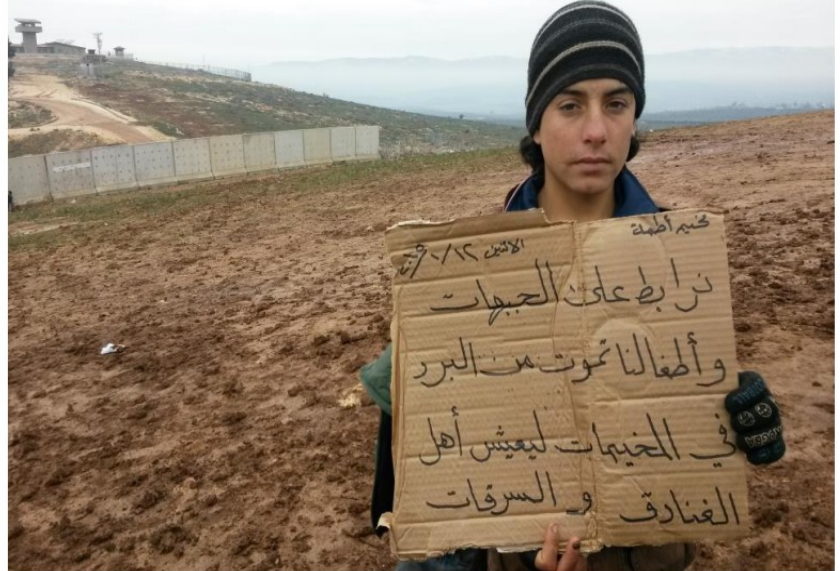 مخيم أطمة
الاثنين
نرابط على الجبهات
وأطفالنا تموت من البرد
في المخيمات ليعيش أهل
الفنادق و السرقات